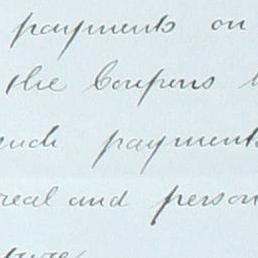 payments on
the Coupons
such payments
real and person